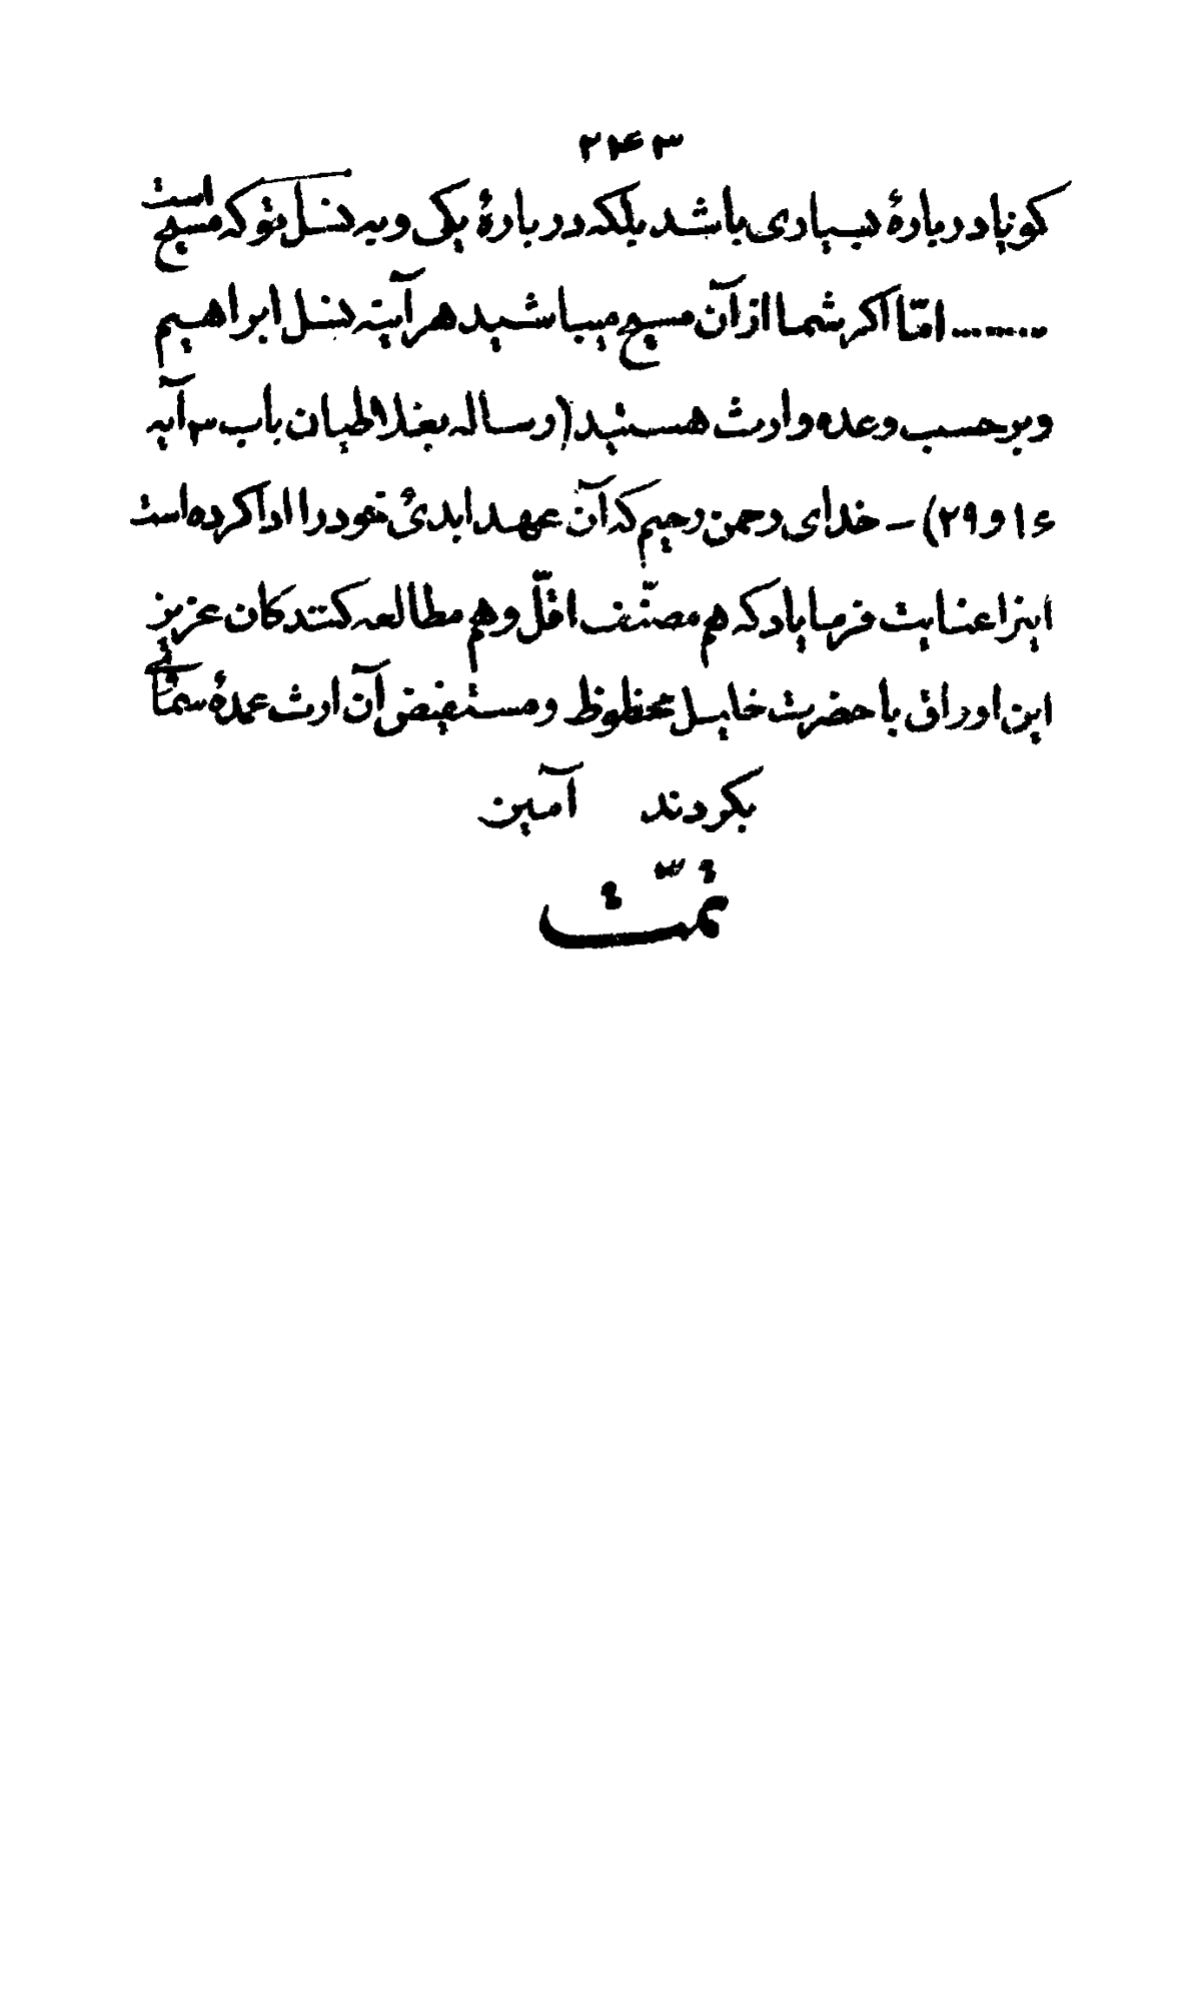 ۲۴۳
کویا دربارهٔ بسیاری باشد بلکه دربارهٔ یکی و به نسل تو که مسیح است
......... امّا اکر شما از آن مسیح میباشید هر آینه نسل ابراهیم
و برحسب وعده وارث هستید (رساله بغلاطیان باب ۳ آیه
۱۶ و ۲۹) – خدای رحمن رحیم که آن عهد ابدیٔ خود را ادا کرده است
اینرا عنایت فرمایاد که هم مصنّف اقلّ و هم مطالعه کنندکان عزیز
این اوراق با حضرت خلیل محظوظ و مستفیض آن ارث عمدهٔ سمائی
بکردند آمین
تمّت